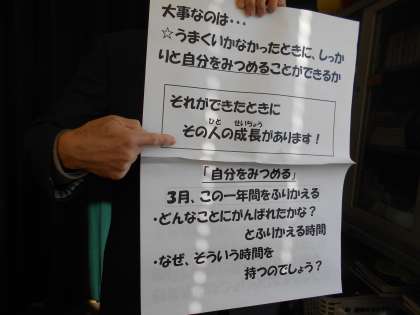 大事なのは・・・
☆うまくいかなかったときに、しっか
りと自分をみつめることができるか
それができたときに
その人の成長があります！
ひと せいちょう
「自分をみつめる」
３月、この一年間をふりかえる
・どんなことにがんばれたかな？
とふりかえる時間
・なぜ、そういう時間を
持つのでしょう？